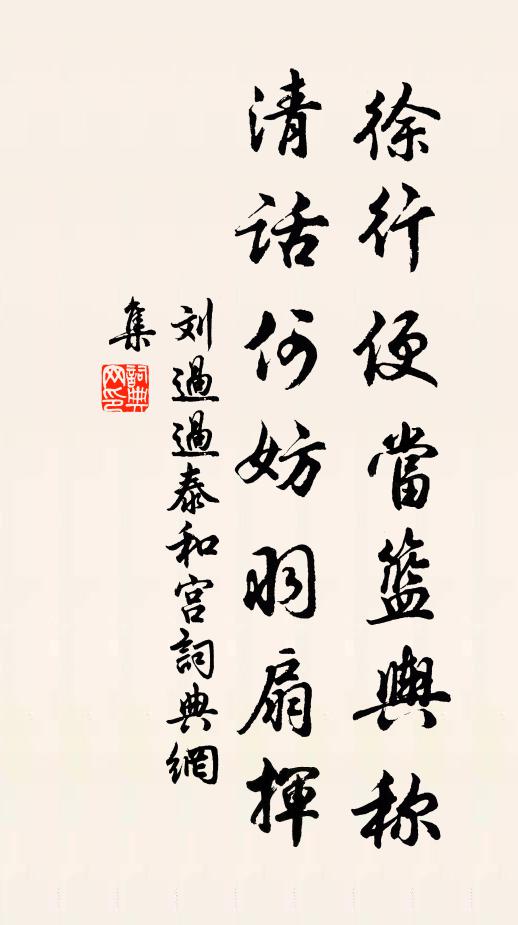 徐行便當籃輿称
清話何妨羽扇揮
刘過過泰和宫詞典網
集
詞典网印